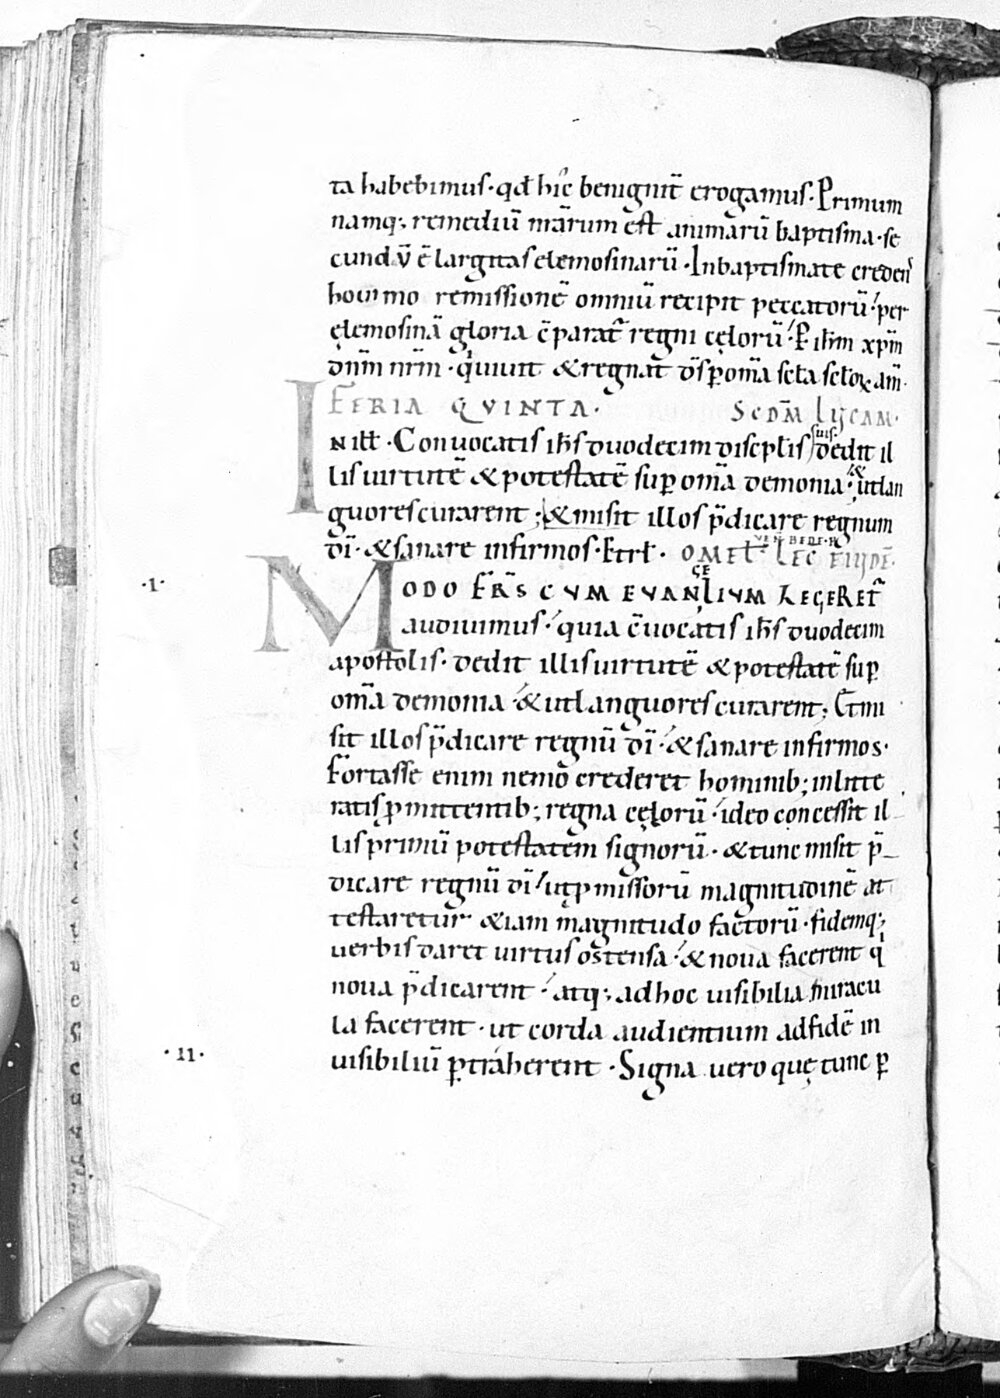 ta habebimus· qđ hic benignit̄ erogamus· Primum
namq; remediū mearum est animarū baptisma· se
cund v̄ ē largitas elemosinarū· In baptismate creden
homo remissionē omniū recipit peccatorū· per
elemosinā gloria c̄parat̄ regni cęlorū· P ih̄m xp̄m
dn̄m nr̄m· qui uiuit & regnat d̄s p om̄a sc̄la sc̄loꝝ am̄·
FERIA QVINTA· SCDM̄ LUCAM·
IN ill̄· Conuocatis ih̄s duodecim discip̄lis suis· dedit il
lis uirtutē & potestatē sup om̄a demonia· & ut lan
guores curarent; & misit illos p̄dicare regnum
dī· & sanare infirmos· Et rl̄· OMEL̄· VEN BEDE PR̄ LEC EIUSDĒ·
·I· MODO FR̄S CVM EVANGELIVM LEGERET̄
audiuimus· quia c̄uocatis ih̄s duodecim
apostolis· dedit illis uirtutē & potestatē sup
om̄a demonia· & ut languores curarent; Et mi
sit illos p̄dicare regnū dī· & sanare infirmos·
Fortasse enim nemo crederet hominib; in litte
ratis p mittentib; regna cęlorū· ideo concessit il
lis primū potestatem signorū· & tunc misit p̄
dicare regnū dī· ut p missorū magnitudinē at
testaretur &iam magnitudo factorū· fidemq;
uerbis daret uirtus ostensa· & noua facerent q
noua p̄dicarent· atq; ad hoc uisibilia miracu
la facerent· ut corda audientium ad fidē in
·II· uisibiliū ptraherent· Signa uero quę tunc p